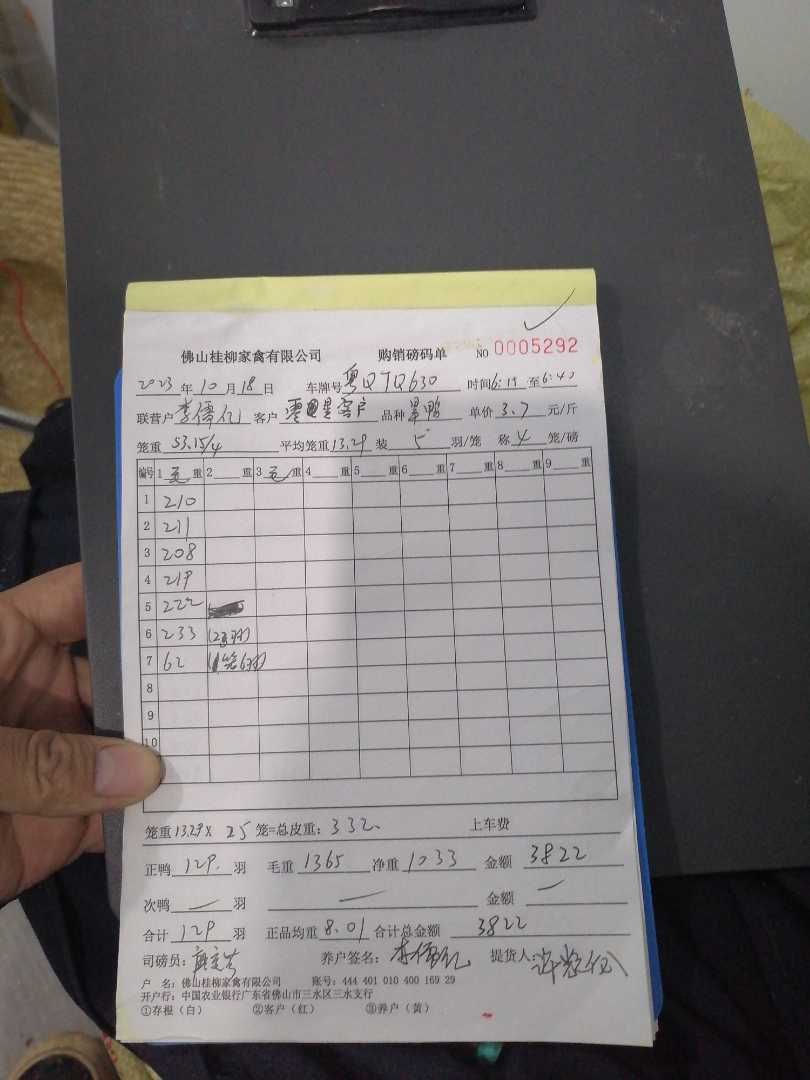 佛山桂柳家禽有限公司 购销磅码单 NO 0005292
2023年10月18日 车牌号粤QTQ630 时间6:19至6:40
联营户李儒亿 客户 零星客户 品种 单价3.7元/斤
笼重53.15/4 平均笼重13.29装5羽/笼 称4笼/磅
编号 1毛重 2 重 3毛重 4 重 5 重 6 重 7 重 8 重 9 重
1 210
2 211
3 208
4 219
5 222
6 233 (23羽)
7 62 (1笼6羽)
8
9
10
笼重13.29×25笼=总皮重:332. 上车费
正鸭129.羽 毛重1365净重1033 金额3822
次鸭—羽 — 金额—
合计129羽 正品均重8.01合计总金额3822
司磅员: 养户签名:李儒亿 提货人:
户 名:佛山桂柳家禽有限公司 账号:444 401 010 400 169 29
开户行:中国农业银行广东省佛山市三水区三水支行
①存根(白) ②客户(红) ③养户(黄)